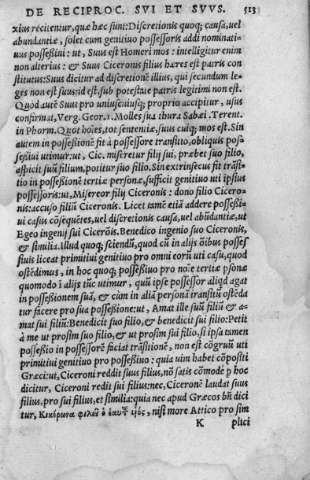 DE RECIPROC. SVI ET SVVS. 513
xius reciteniur, quæ hæc sunt: Discretionis quoq; causa, uel
abundantiæ, solet cum genitiuo possessoris addi nominati-
uus possessiui: ut, Suus est Homeri mos: intelligitur enim
non alterius: & Suus Ciceronis filius hæres est patris con
stitutus: Suus dicitur ad discretionē illius, qui secundum le-
ges non est suus: id est, sub potestate patris legitimi non est.
Quod autē Suus pro uniuscuiusq; proprio accipitur, usus
confirmat, Verg. Geor. 1. Molles sua thura Sabæi. Terent.
in Phorm. Quot hoīes, tot sententiæ, suus cuiq; mos est. Sin
autem in possessionē fit à possessore transitio, obliquis pos-
sessiui utimur: ut, Cic. miseretur filij sui, præbet suo filio,
aspicit suū filium, potitur suo filio. Sin extrinsecus fit trāsi-
tio in possessionē tertiæ personæ, sufficit genitiuo uti ipsius
possessoris: ut, Misereor filij Ciceronis: dono filio Cicero-
nis: accuso filiū Ciceronis. Licet tamē etiā addere possessi-
ui casus cōsequētes, uel discretionis causa, uel abūdantiæ, ut
Egeo ingenij sui Cicerōis. Benedico ingenio suo Ciceronis,
& similia. Illud quoq; sciendū, quod cū in alijs oībus posses
siuis liceat primitiui genitiuo pro omni eorū uti casu, quod
ostēdimus, in hoc quoq; possessiuo pro noīe tertiæ psonæ
quomodo ī alijs nūc utimur, quū ipse possessor aliqd agat
in possessionem suā, & cum in aliā personā transitū ostēda
tur facere pro sua possessione: ut, Amat ille suū filiū & a-
mat sui filiū: Benedicit suo filio, & benedicit sui filio: Petit
à me ut prosim suo filio, & ut prosim sui filio, si ipsa tamen
possessio in possessorē faciat trāsitionē, non est cōgruū uti
primitiui genitiuo pro possessiuo: quia uim habet cōpositi
Græci: ut, Ciceroni reddit suus filius, nō satis cōmode p hoc
dicitur, Ciceroni redit sui filius: nec, Ciceronē laudat suus
filius, pro sui filius, et similia: quia nec apud Græcos bñ dici
tur, Κικέρωνα φιλεῖ ὁ ἑαυτοῦ υἱός, nisi more Attico pro sim
K plici